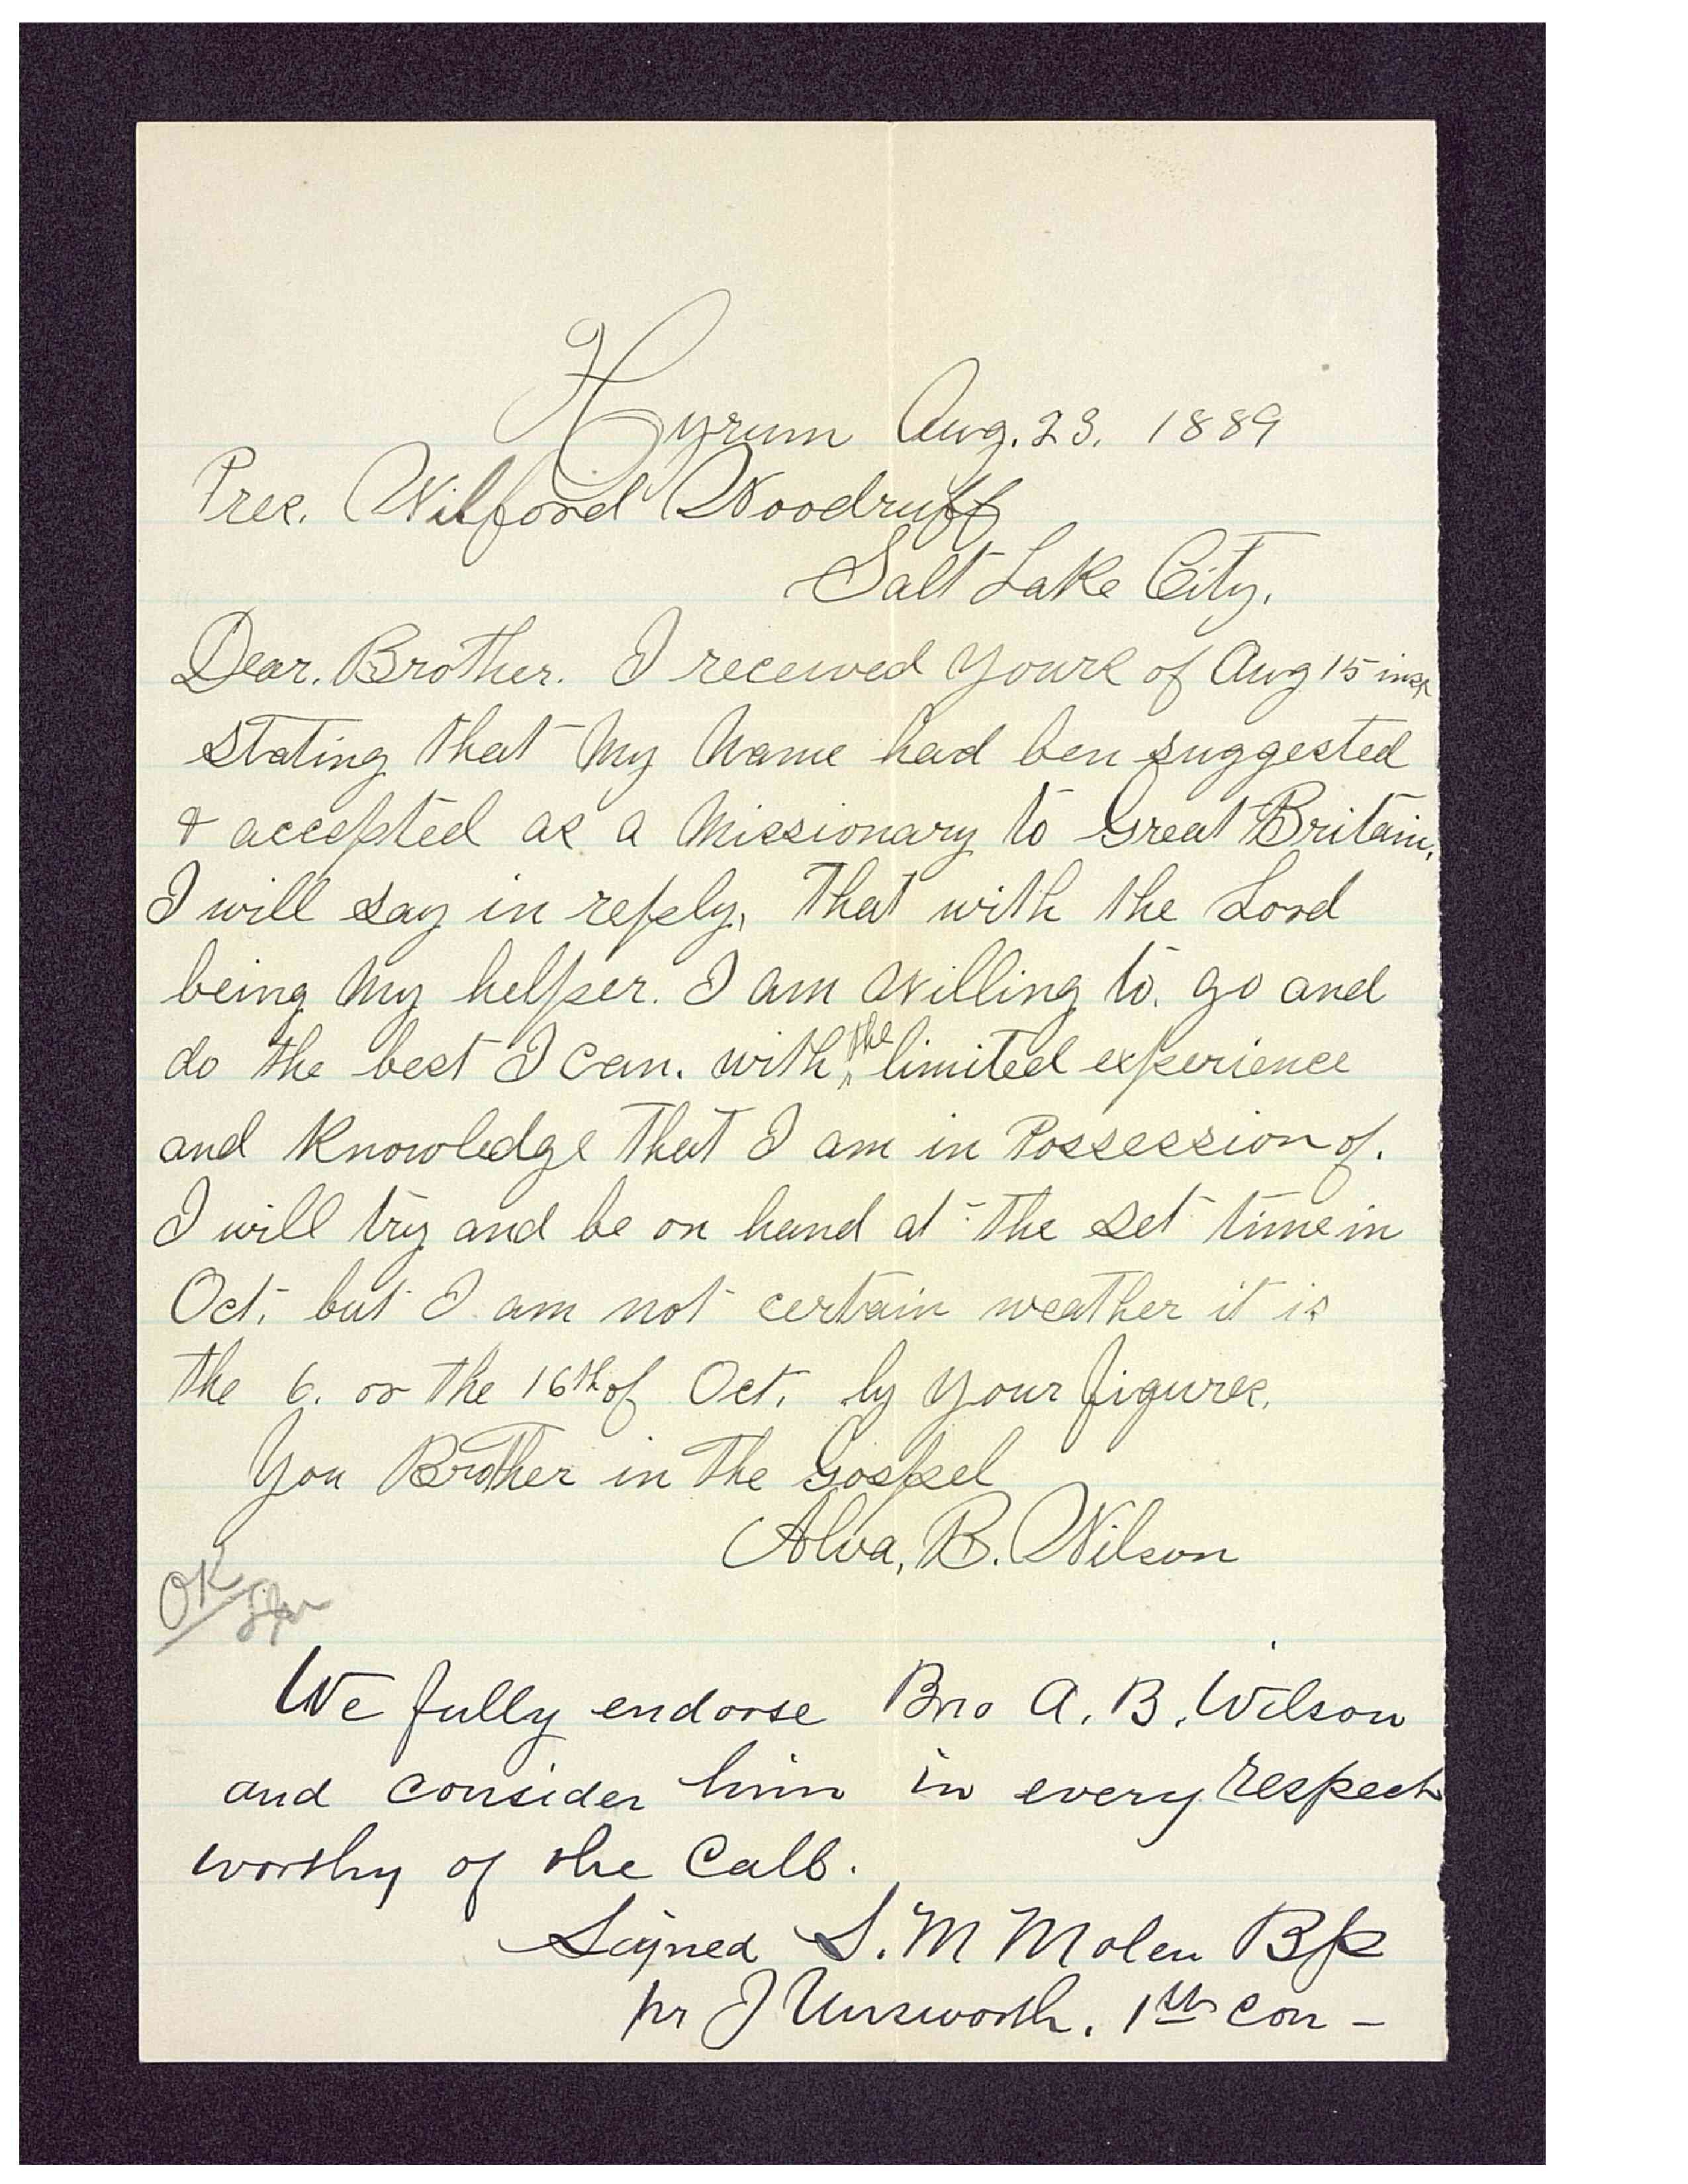 Hyrum Aug. 23. 1889
Pres. Wilford Woodruff
Salt Lake City.
Dear. Brother. I received yours of Aug 15 inst
stating that my name had ben suggested
& accepted as a missionary to Great Britain.
I will say in reply, that with the Lord
being my helper. I am willing to. go and
do the best I can. with the limited experience
and knowledge that I am in Possession of.
I will try and be on hand at the set time in
Oct. but I am not certain weather it is
the 6. or the 16th of Oct. by your figures.
You Brother in the Gospel
Alva, B. Wilson
OK
We fully endorse Bro A. B. Wilson
and consider him in every respect
worthy of the Call.
Signed S. M Molen Bp
pr J Unsworth. 1st Con -